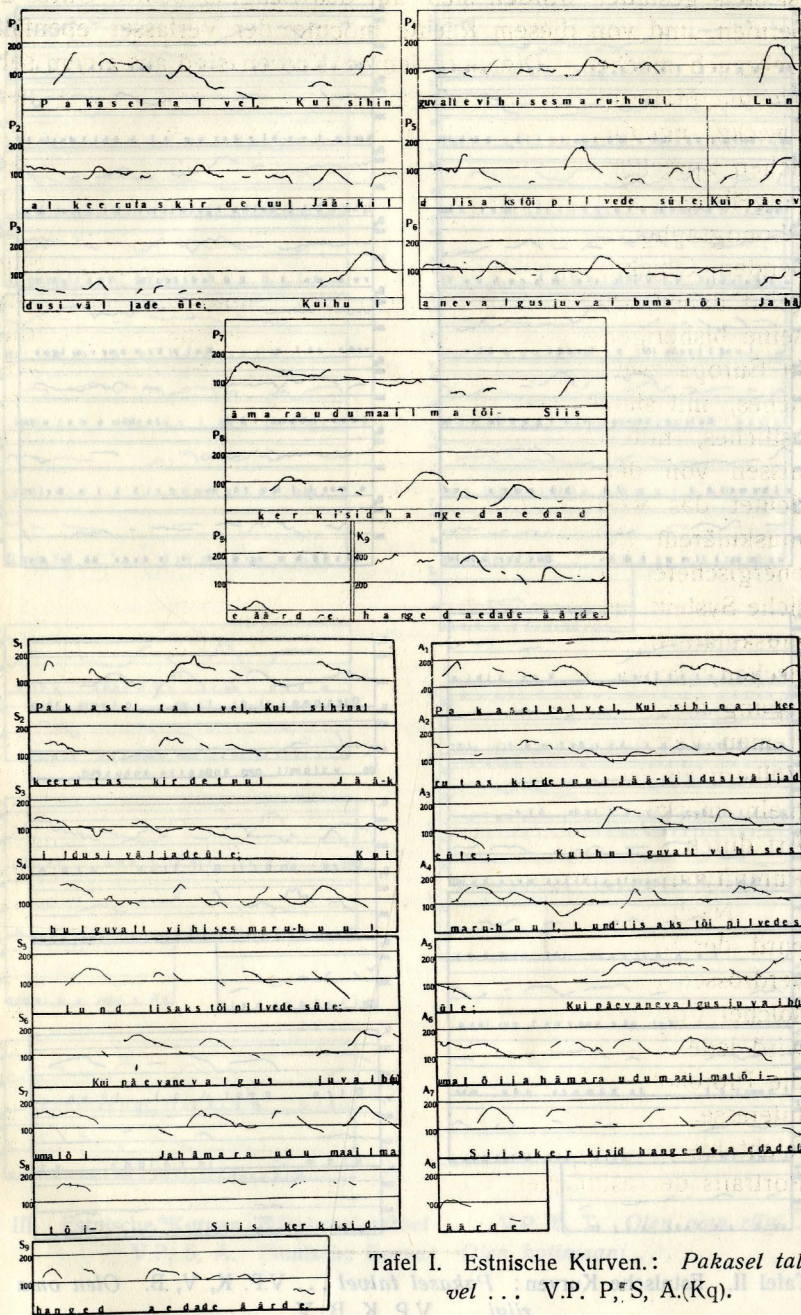 P1 200 100
Pakasel talvel, Kui sihin
P2 200 100
al keerutas kirdetuul Jää-kil
P3 200 100
dusi väljade üle; Kui hul
P4 200 100
guvalt evihises maru-huul, Lun
P5 200 100
d lisaks tõi pilvede süle; Kui päev
P6 200 100
anevalgus juva ibuma tõi Ja hä
P7 200 100
ämara udu maailma tõi- Siis
P8 200 100
kerkisid hanged aedad
P9 200 100
e äärde.
K9 400 200
hanged aedade äärde.
S1 200 100
Pakasel talvel, Kui sihinal
S2 200 100
keerutas kirdetuul Jää-k
S3 200 100
ildusi väljade üle; Kui
S4 200 100
hulguvalt vihises maru-huul,
S5 200 100
Lund lisaks tõi pilvede süle;
S6 200 100
Kui päevanevalgus juvaib
S7 200 100
uma tõi Ja hämara udu maailma
S8 200 100
tõi- Siis kerkisid
S9 200 100
hanged aedade äärde.
A1 200 100
Pakasel talvel, Kui sihinal kee
A2 200 100
rutas kirdetuul Jää-kildusi väljad
A3 200 100
e üle; Kui hulguvalt vihises
A4 200 100
maru-huul, Lund lisaks tõi pilvede s
A5 200 100
üle; Kui päevanevalgus juvaib
A6 200 100
uma tõi ja hämara udu maailma tõi-
A7 200 100
Siis kerkisid hanged
A8 200 100
äärde.
Tafel I. Estnische Kurven.: Pakasel tal
vel ... V.P. P, S, A.(Kq).